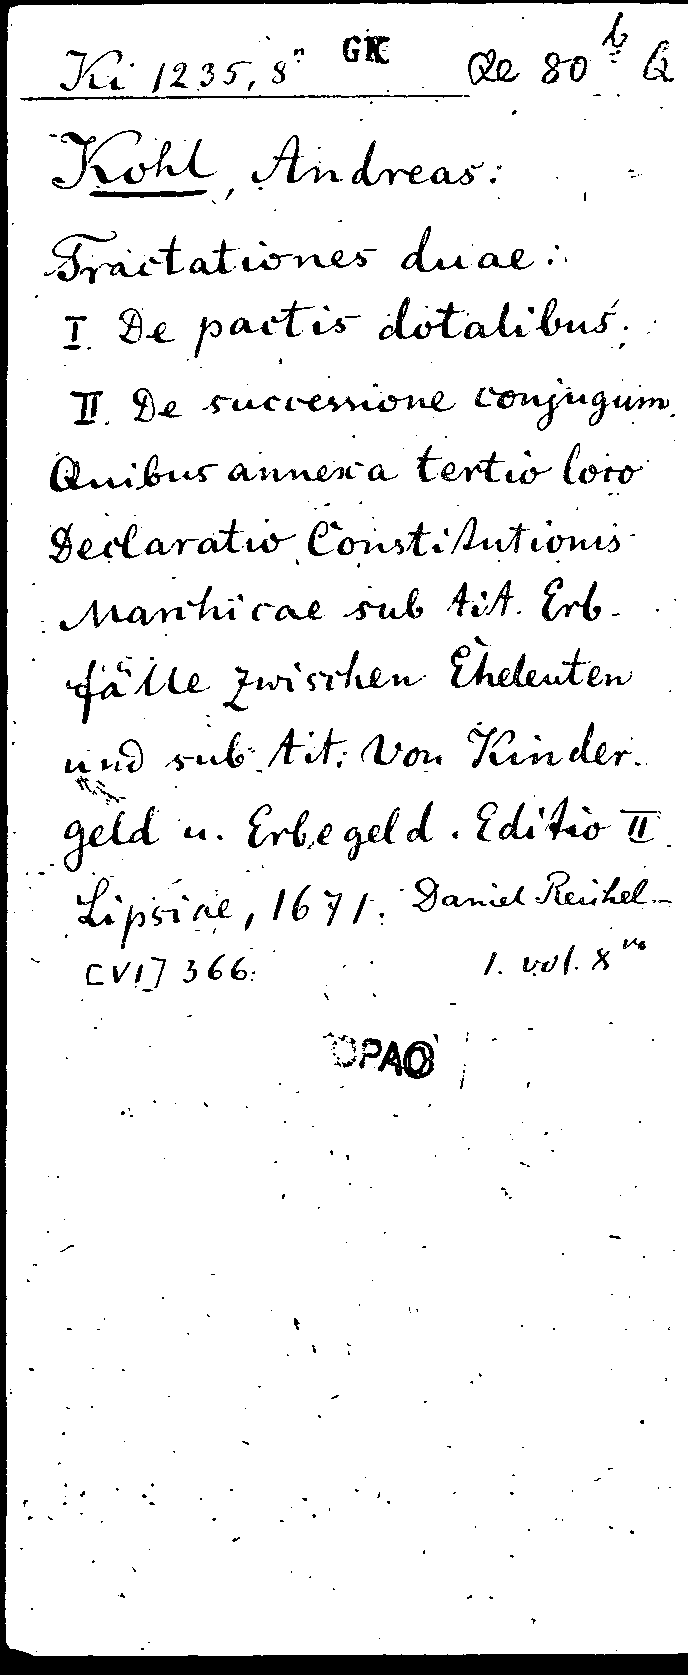 Ki 1235, 8° GK Qe 80 b Q
Kohl, Andreas:
Tractationes duae:
I. De pactis dotalibus;
II. De successione conjugum.
Quibus annexa tertio loco
Declaratio Constitutionis
Marchicae sub tit. Erb-
fälle zwischen Eheleuten
und sub tit: Von Kinder-
geld u. Erbegeld. Editio II
Lipsiae, 1671. Daniel Reichel
[VI] 366. 1. vol. 8vo
OPAC